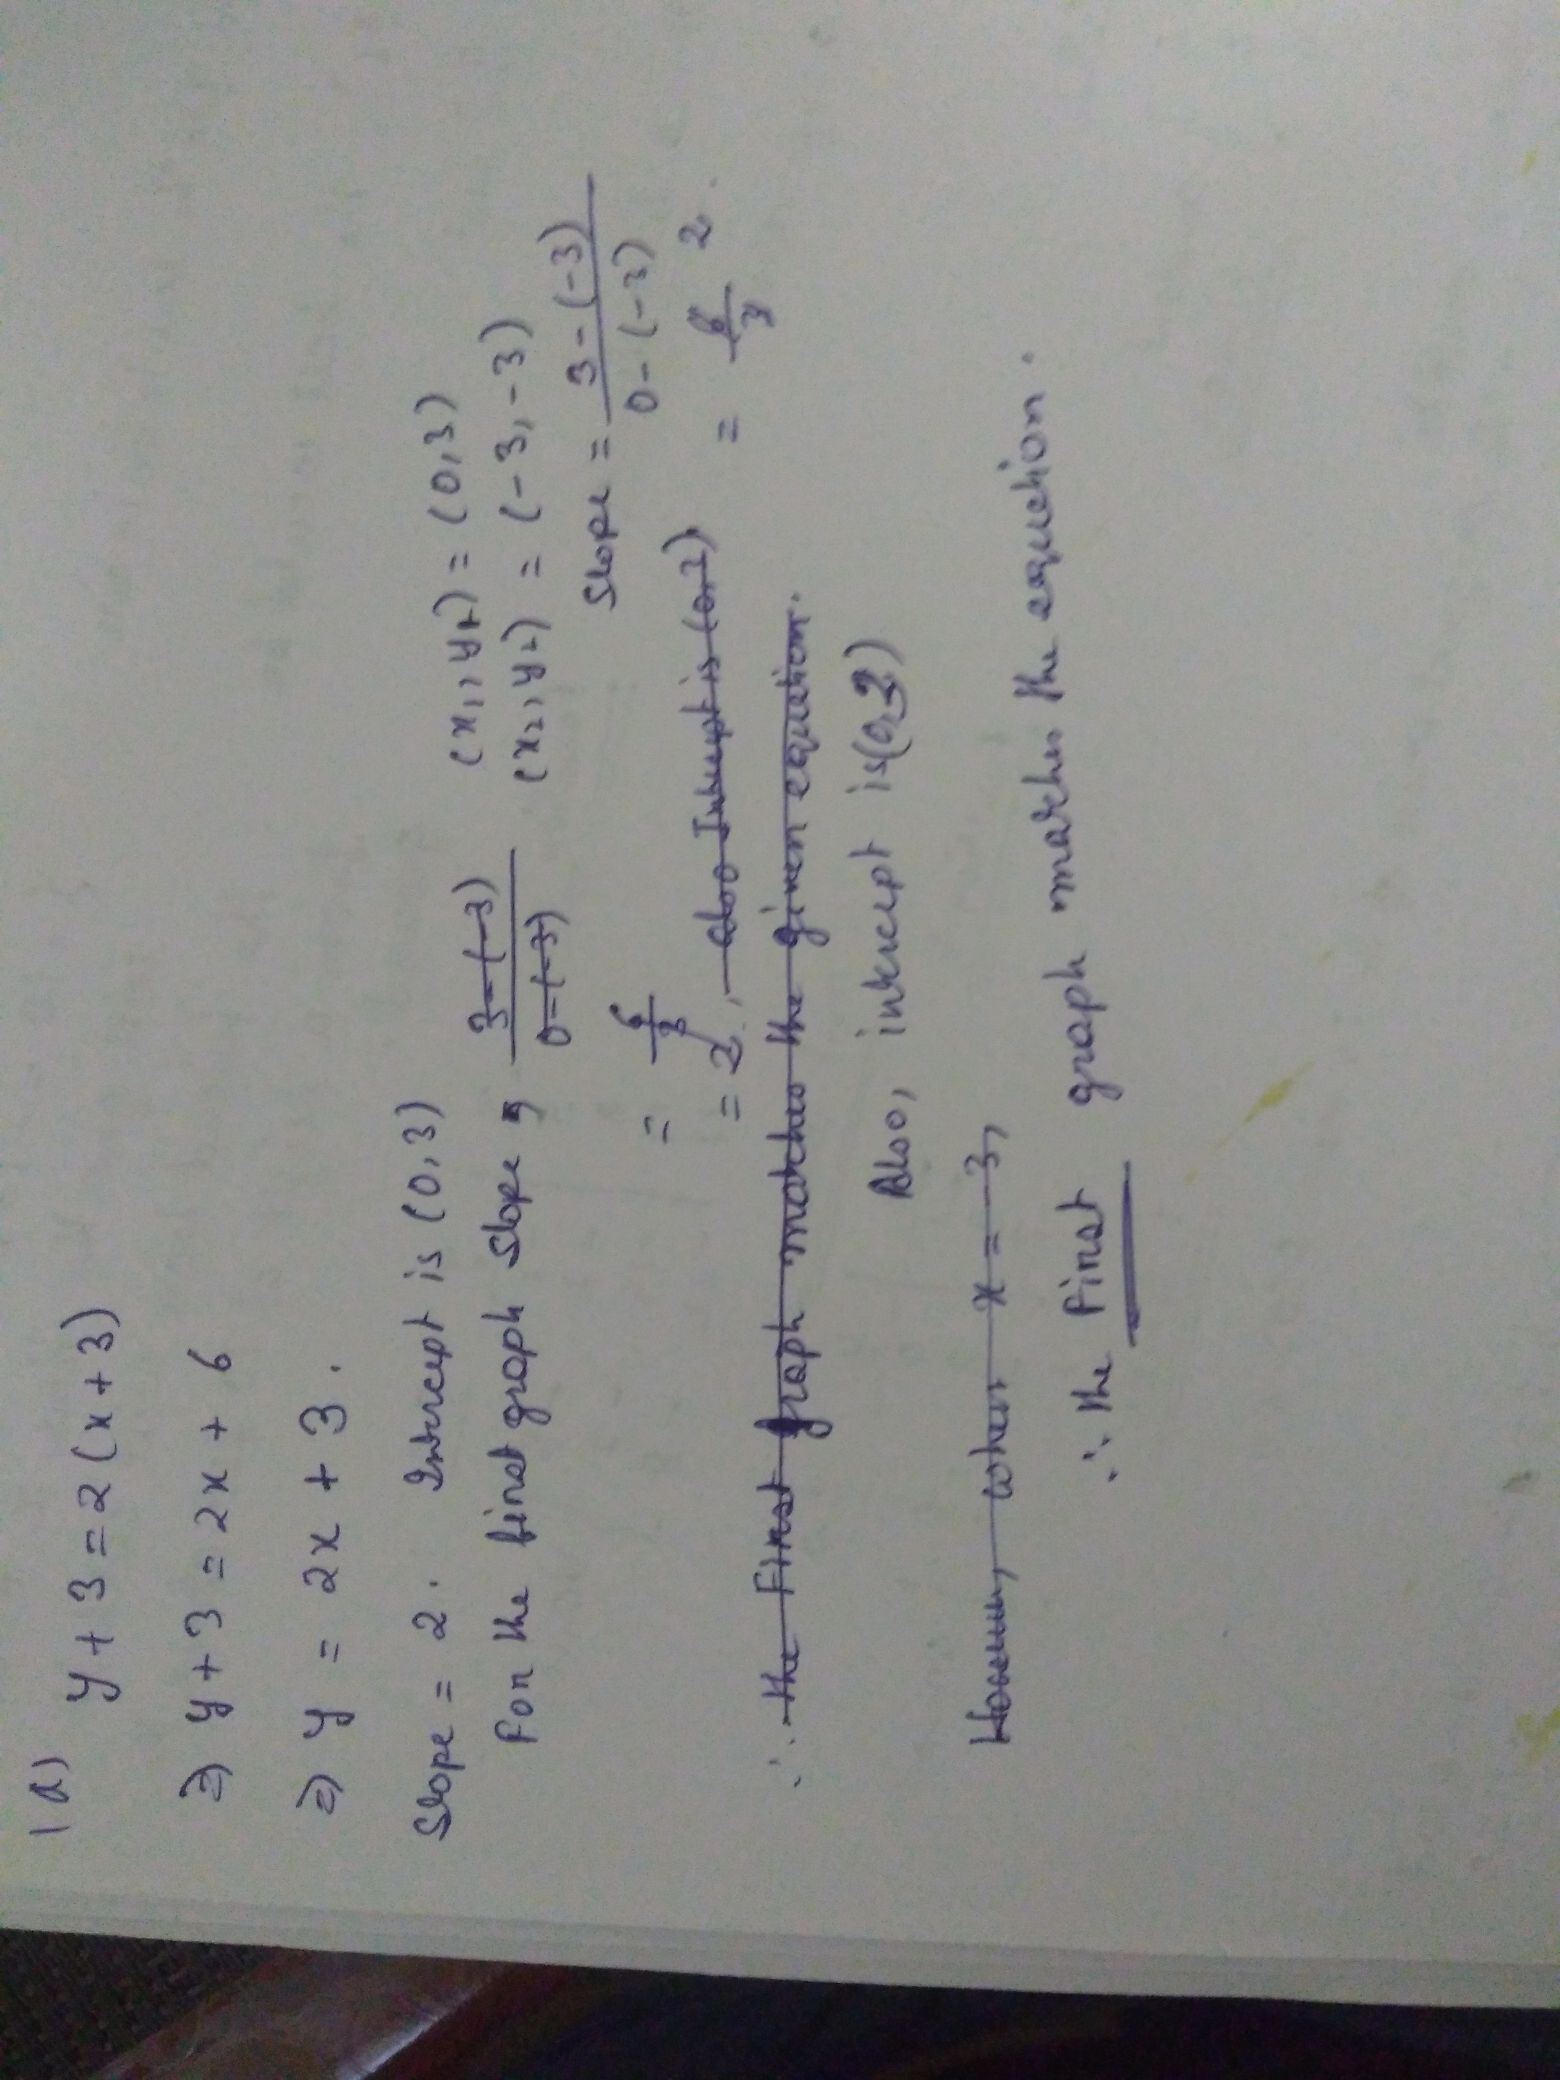 1a) y + 3 = 2 (x + 3)
⇒ y + 3 = 2x + 6
⇒ y = 2x + 3.
Slope = 2. Intercept is (0, 3)
(x1, y1) = (0, 3)
For the first graph slope, 3-(-3) / 0-(-3)
(x2, y2) = (-3, -3)
Slope = 3 - (-3) / 0 - (-3)
= 6/3
= 6/3 2.
= 2, also Intercept is (0,2)
∴ the First graph matches the given equation.
Also, intercept is (0,3)
However, when x = -3,
∴ the First graph matches the equation.